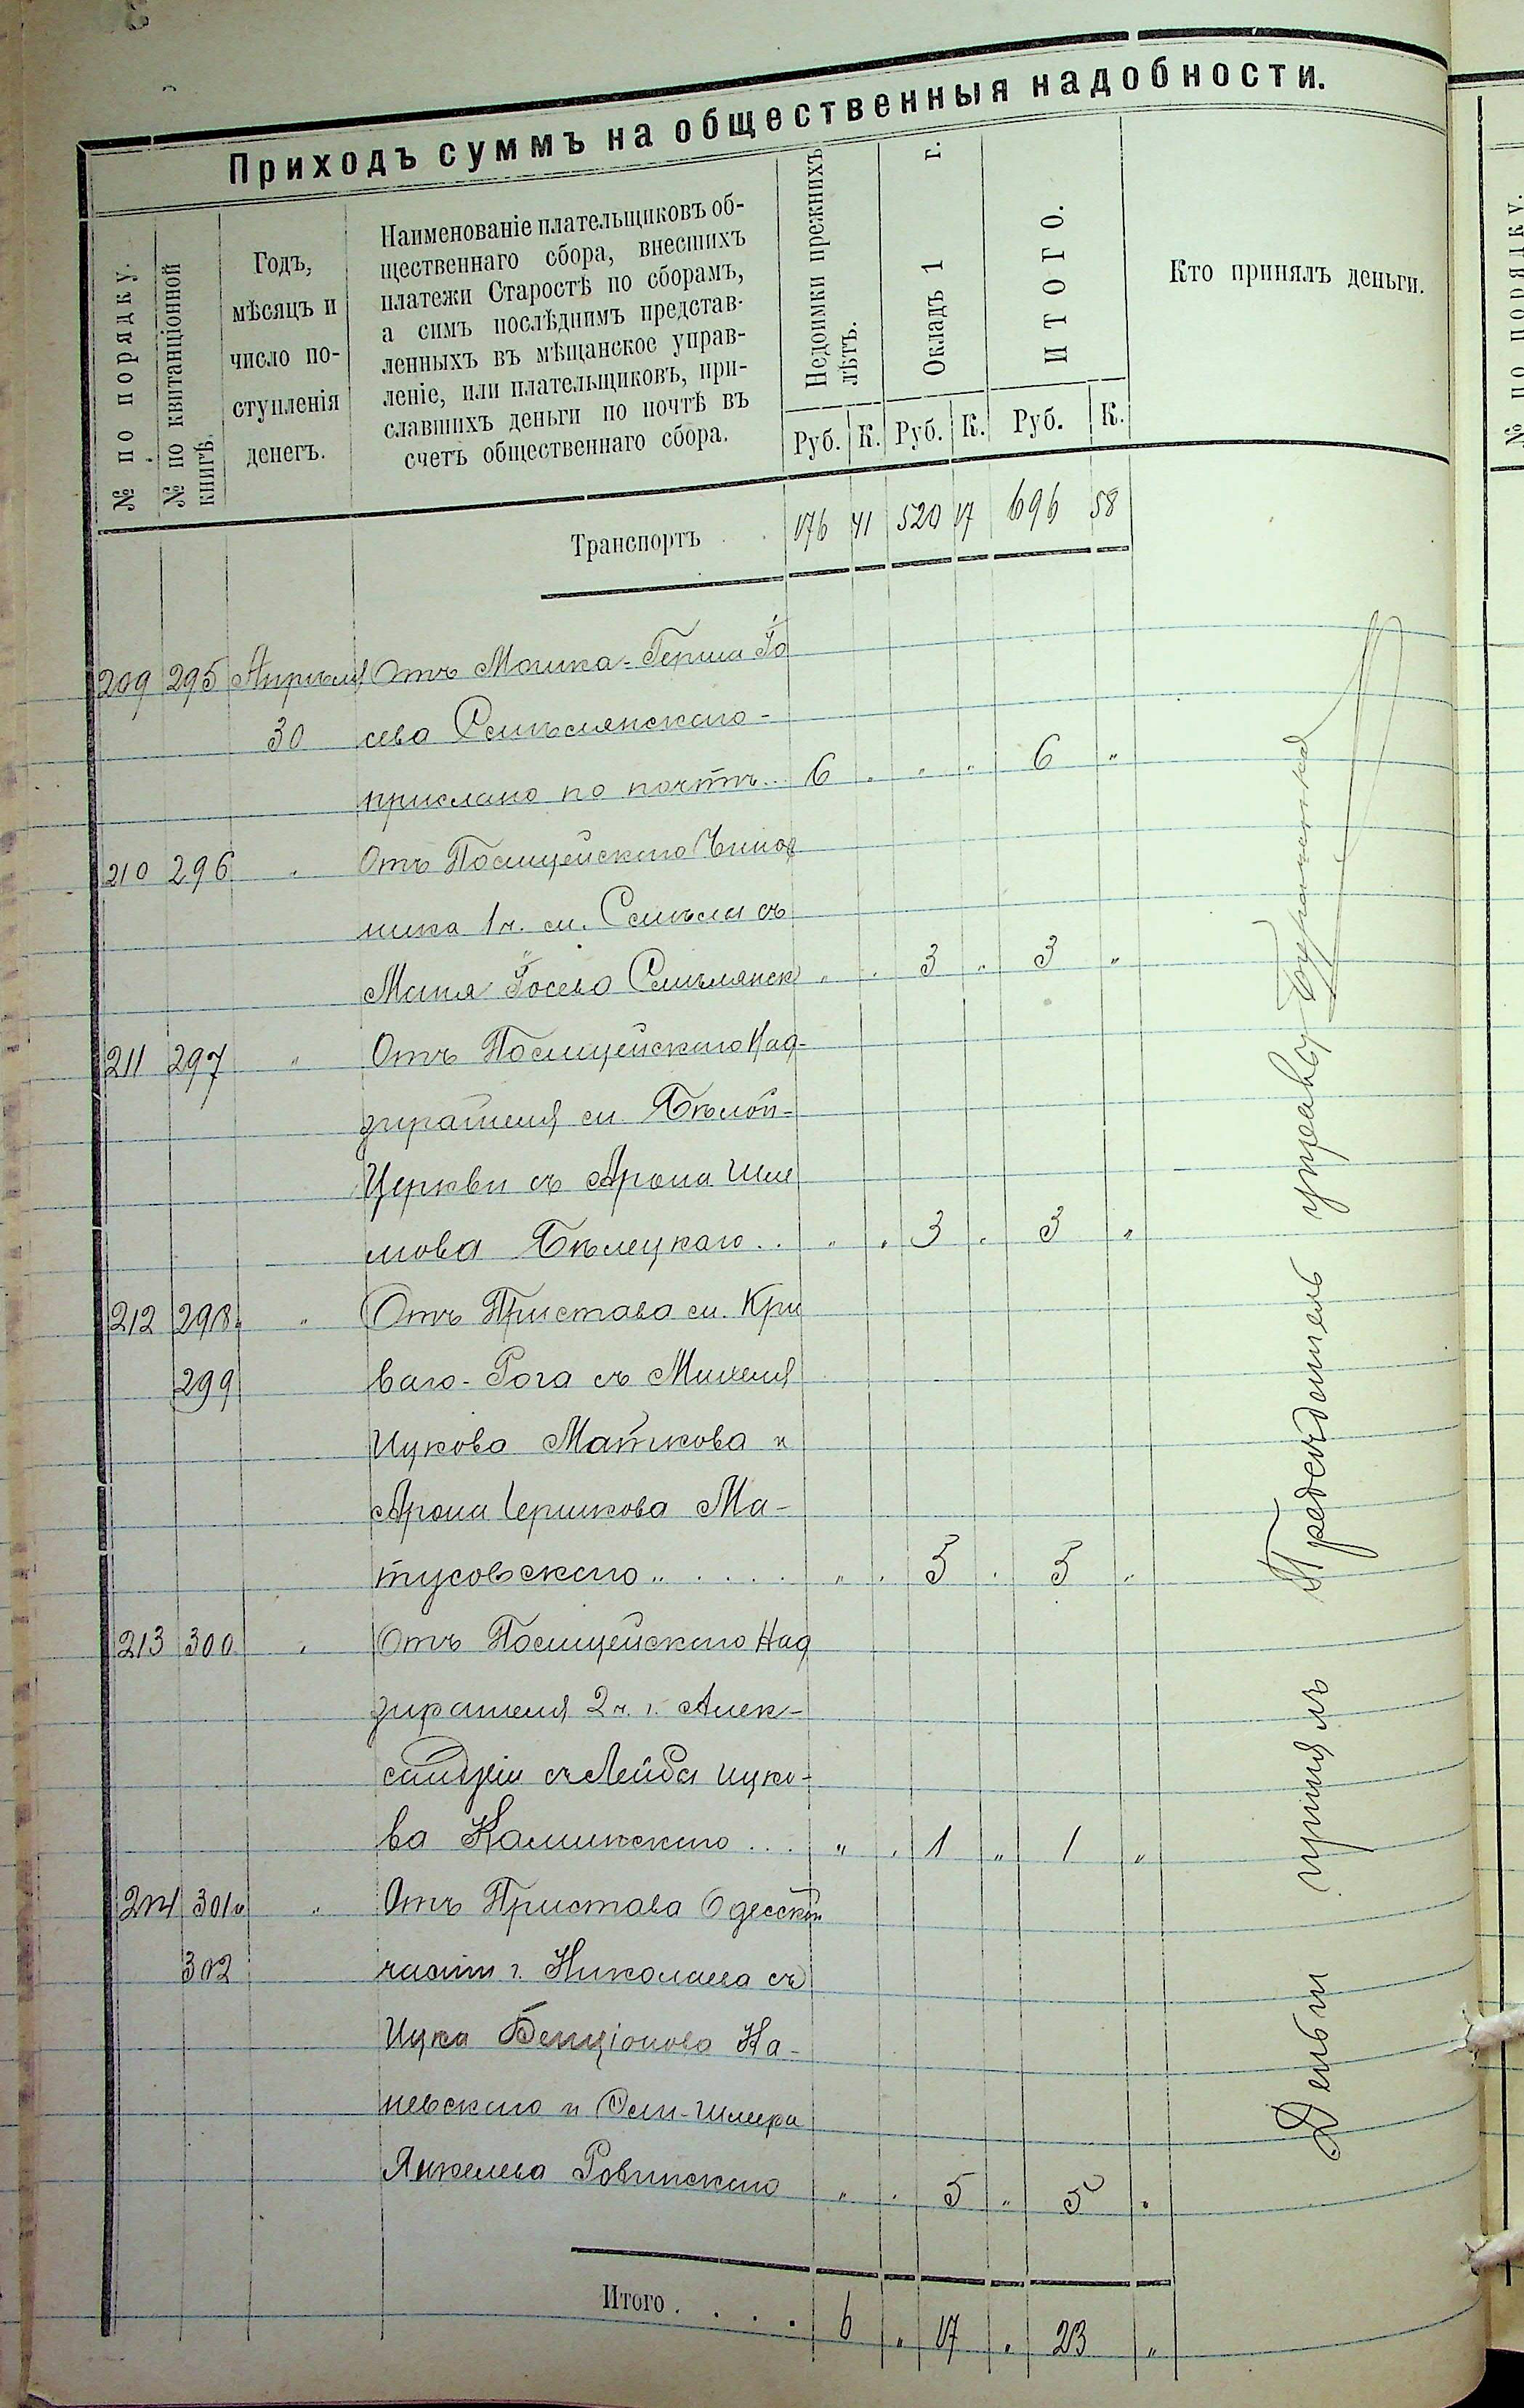 Приходъ суммъ на общественныя надобности.
№ по порядку.
№ по квитанціонной
книгѣ.
Годъ,
мѣсяцъ и
число по-
ступленія
денегъ.
Наименованіе плательщиковъ об-
щественнаго сбора, внесшихъ
платежи Старостѣ по сборамъ,
а симъ послѣднимъ представ-
ленныхъ въ мѣщанское управ-
леніе, или плательщиковъ, при-
славшихъ деньги по почтѣ въ
счетъ общественнаго сбора.
Недоимки прежнихъ
лѣтъ.
Окладъ 1 г.
ИТОГО.
Кто принялъ деньги.
Руб. К. Руб. К. Руб. К.
Транспортъ . . 176 41 520 17 696 58
209 295 Апрѣля Отъ Мошка-Герша Іо
30 сева Смѣлянскаго-
прислано по почтѣ.. 6 „ „ „ 6 „
210 296 „ Отъ Полицейскаго Чинов
ника 1 ч. м. Смѣлы съ
Іосева Смѣлянск „ „ 3 „ 3 „
211 297 „ Отъ Полицейскаго Над-
зирателя м. Бѣлой-
Церкви съ Арона Шле
мова Бѣлецкаго.. „ „ 3 „ 3 „
212 298 „ Отъ Пристава м. Кри
299 ваго-Рога съ Михеля
Ицкова Маткова и
Арона Гершкова Ма-
тусовскаго.. . . . . „ „ 5 „ 5 „
213 300 „ Отъ Полицейскаго Над
зирателя 2 ч. г. Алек-
сандріи съ Лейба Ицко-
ва Калинскаго ... „ „ 1 „ 1 „
214 301 и „ Отъ Пристава Одесской
302 части г. Николаева съ
Ицка Бенціонова Ка-
невскаго и
Янкелева Ровинскаго „ „ 5 „ 5 „
Итого . . . . 6 „ 17 „ 23 „
Деньги принялъ Предсѣдатель управы